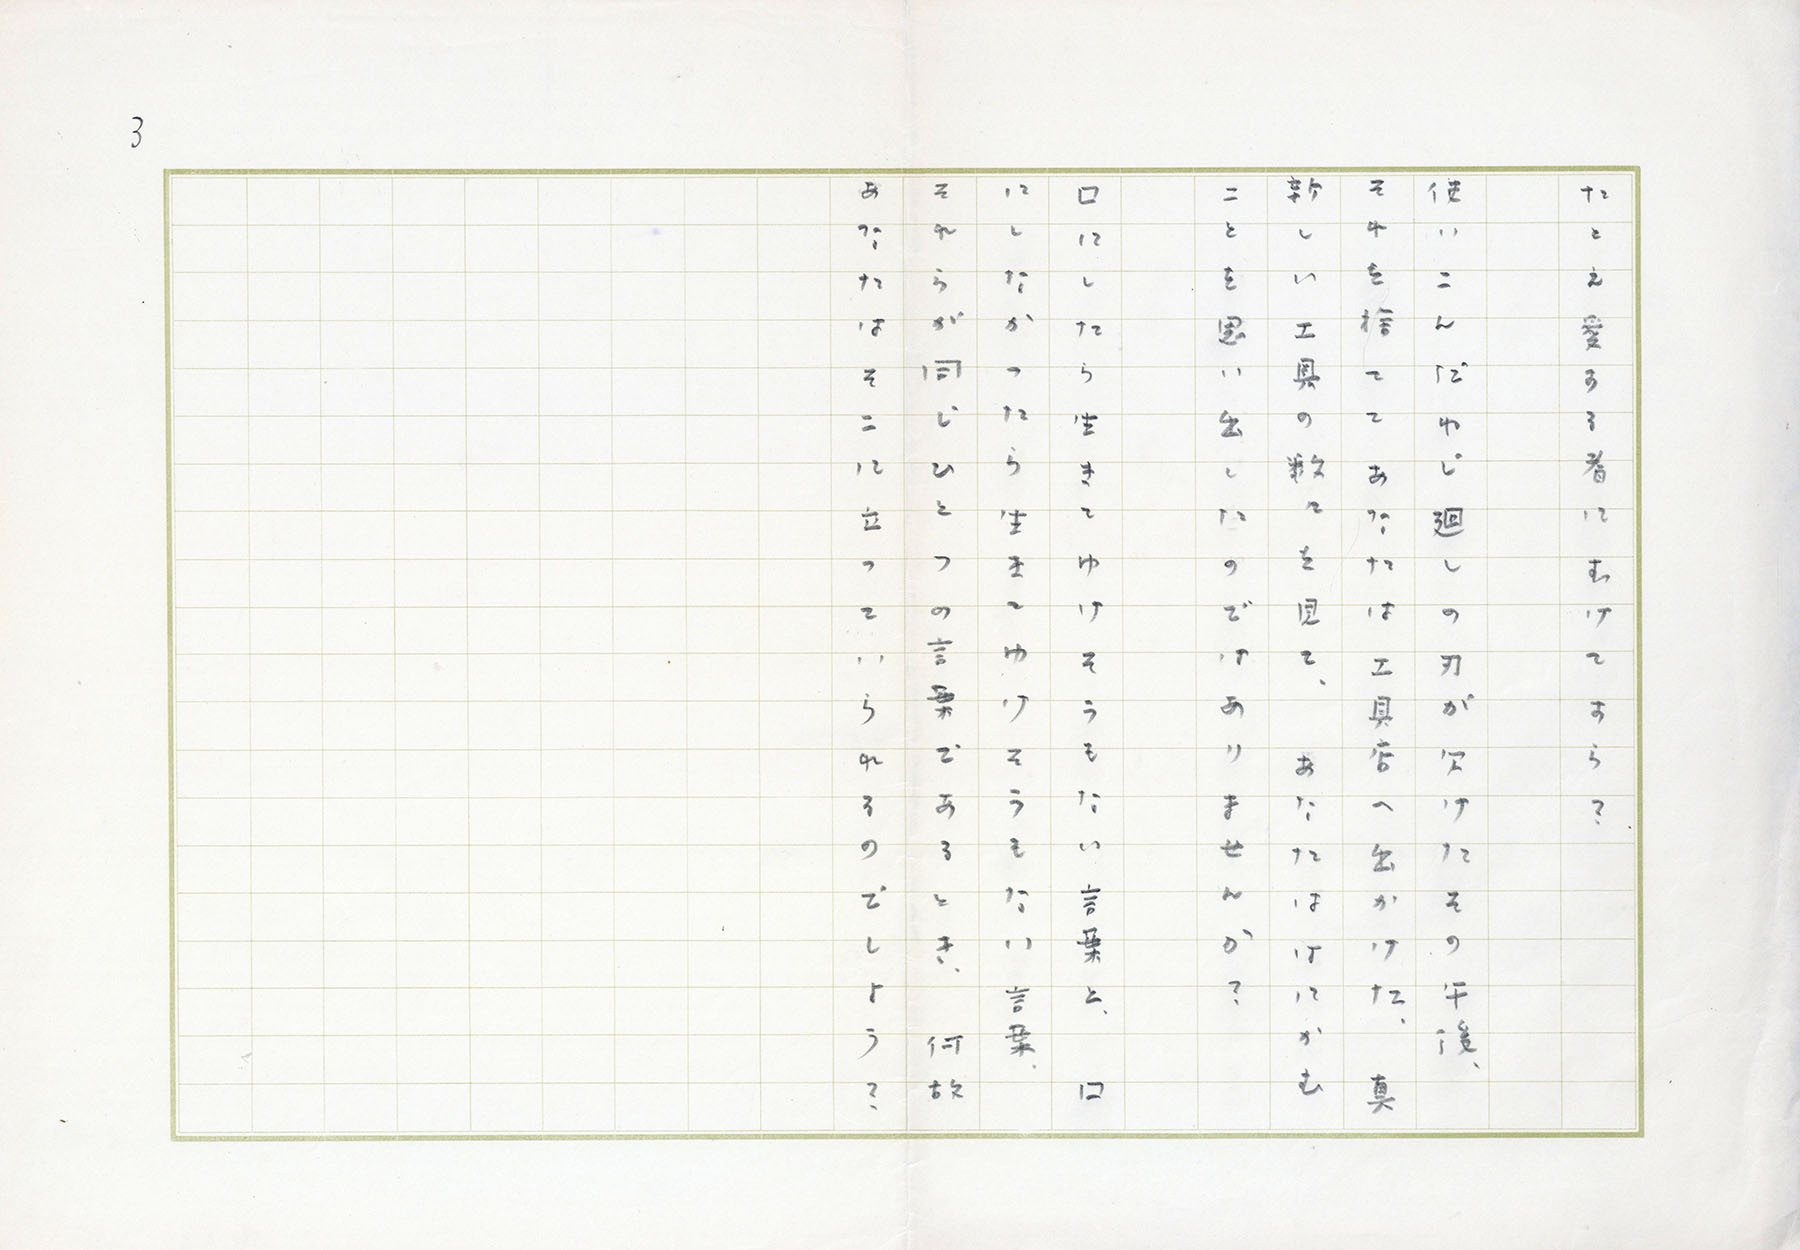 3
たとえ愛する者にむけてすら?
使いこんだねじ廻しの刃が欠けたその午後、
それを捨ててあなたは工具店へ出かけた、真
新しい工具の数々を見て、あなたははにかむ
ことを思い出したのではありませんか?
口にしたら生きてゆけそうもない言葉と、口
にしなかったら生きてゆけそうもない言葉、
それらが同じひとつの言葉であるとき、何故
あなたはそこに立っていられるのでしょう?